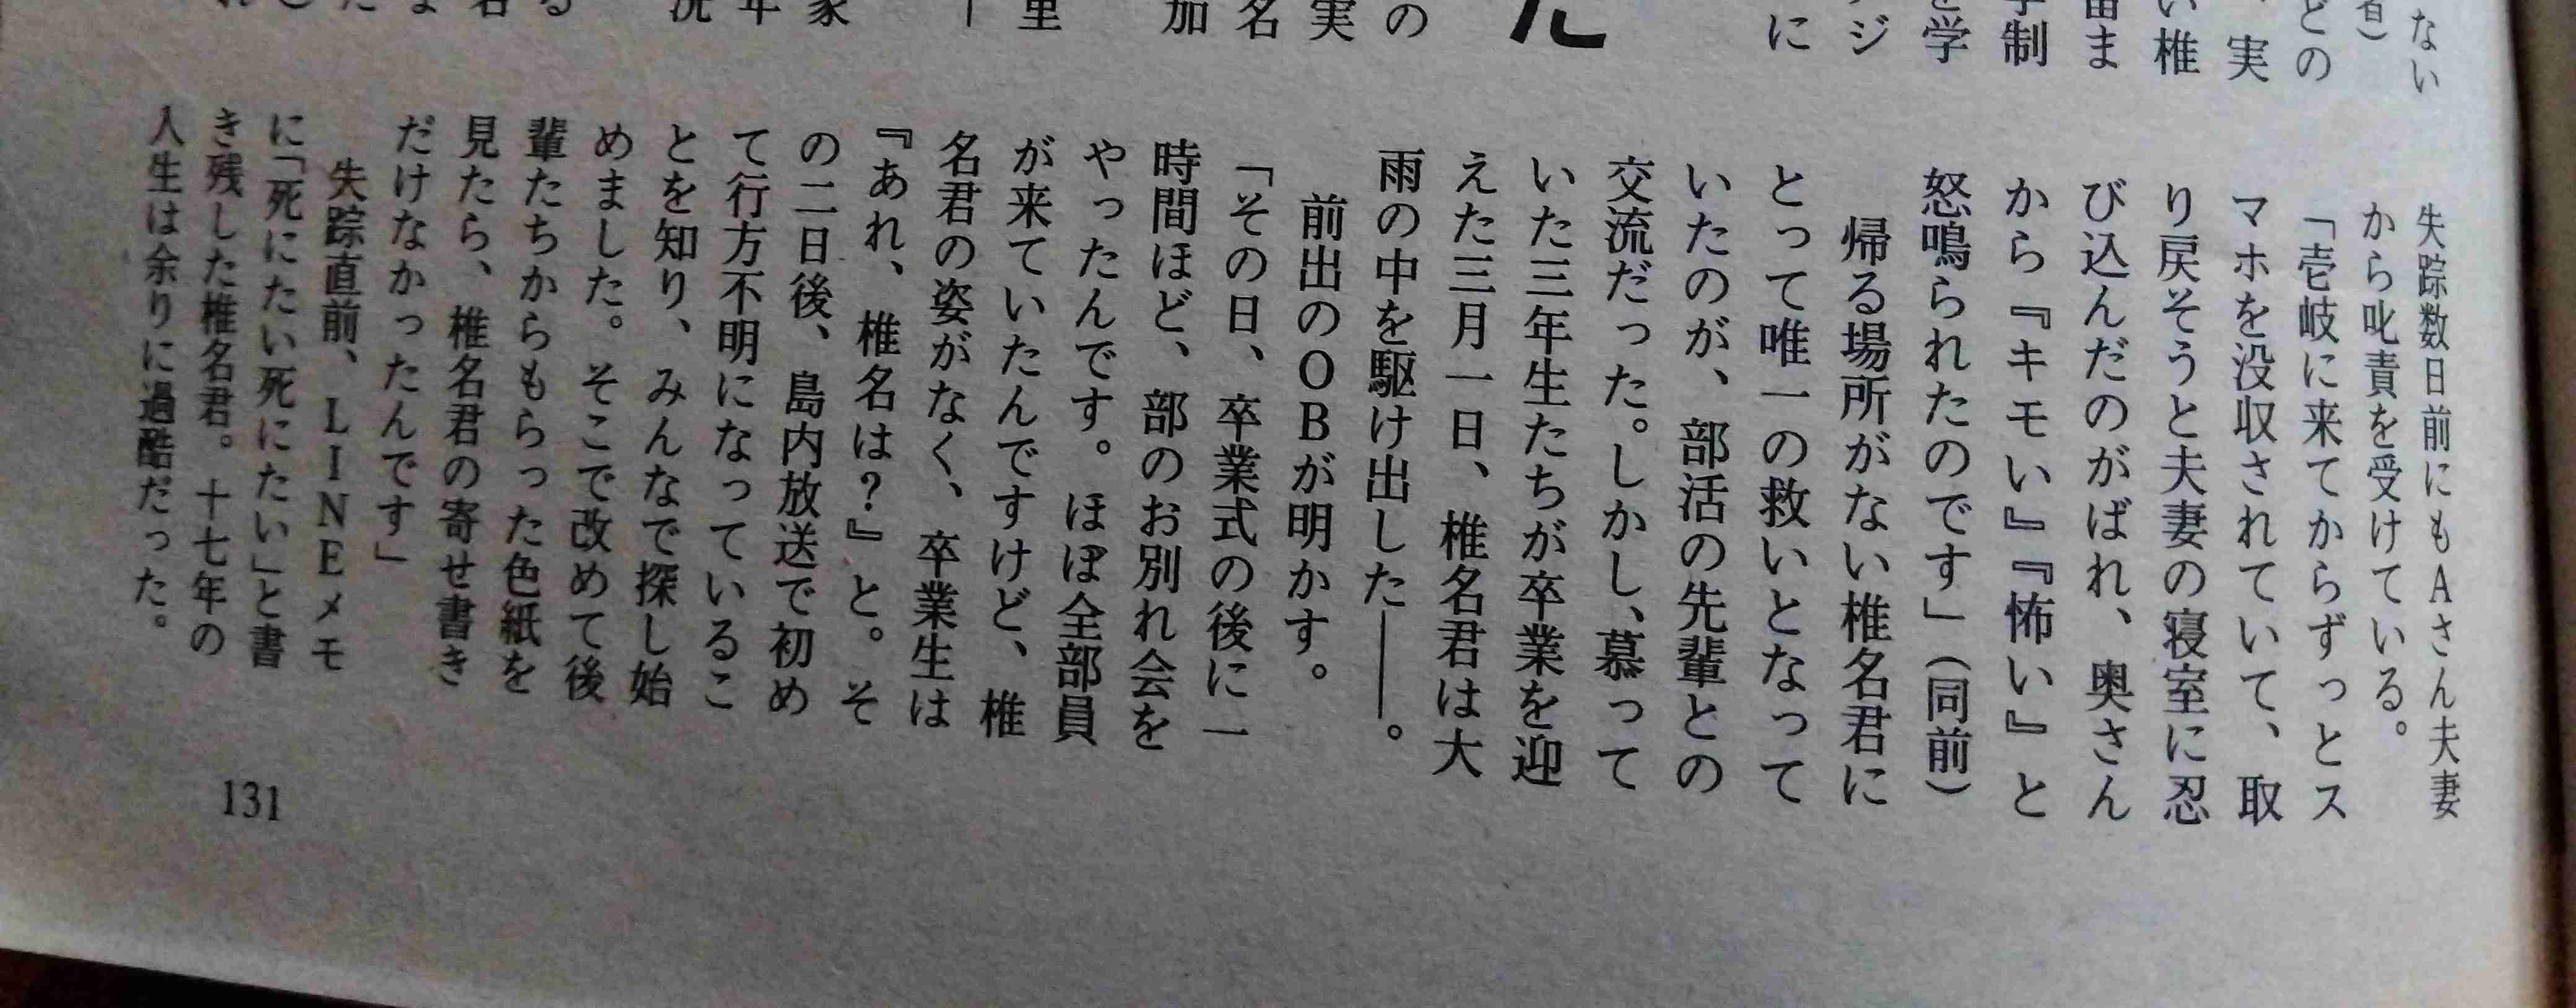 ない
者）
どの
、実
い椎
留ま
学制
を学
ジ
に
た
の
実
名
加
里
ー
家
年
況
る
名
ま
た
失踪数日前にもAさん夫妻
から叱責を受けている。
「壱岐に来てからずっとス
マホを没収されていて、取
り戻そうと夫妻の寝室に忍
び込んだのがばれ、奥さん
から『キモい』『怖い』と
怒鳴られたのです」（同前）
帰る場所がない椎名君に
とって唯一の救いとなって
いたのが、部活の先輩との
交流だった。しかし、慕って
いた三年生たちが卒業を迎
えた三月一日、椎名君は大
雨の中を駆け出した――。
前出のOBが明かす。
「その日、卒業式の後に一
時間ほど、部のお別れ会を
やったんです。ほぼ全部員
が来ていたんですけど、椎
名君の姿がなく、卒業生は
『あれ、椎名は？』と。そ
の二日後、島内放送で初め
て行方不明になっているこ
とを知り、みんなで探し始
めました。そこで改めて後
輩たちからもらった色紙を
見たら、椎名君の寄せ書き
だけなかったんです」
失踪直前、LINEメモ
に「死にたい死にたい」と書
き残した椎名君。十七年の
人生は余りに過酷だった。
131